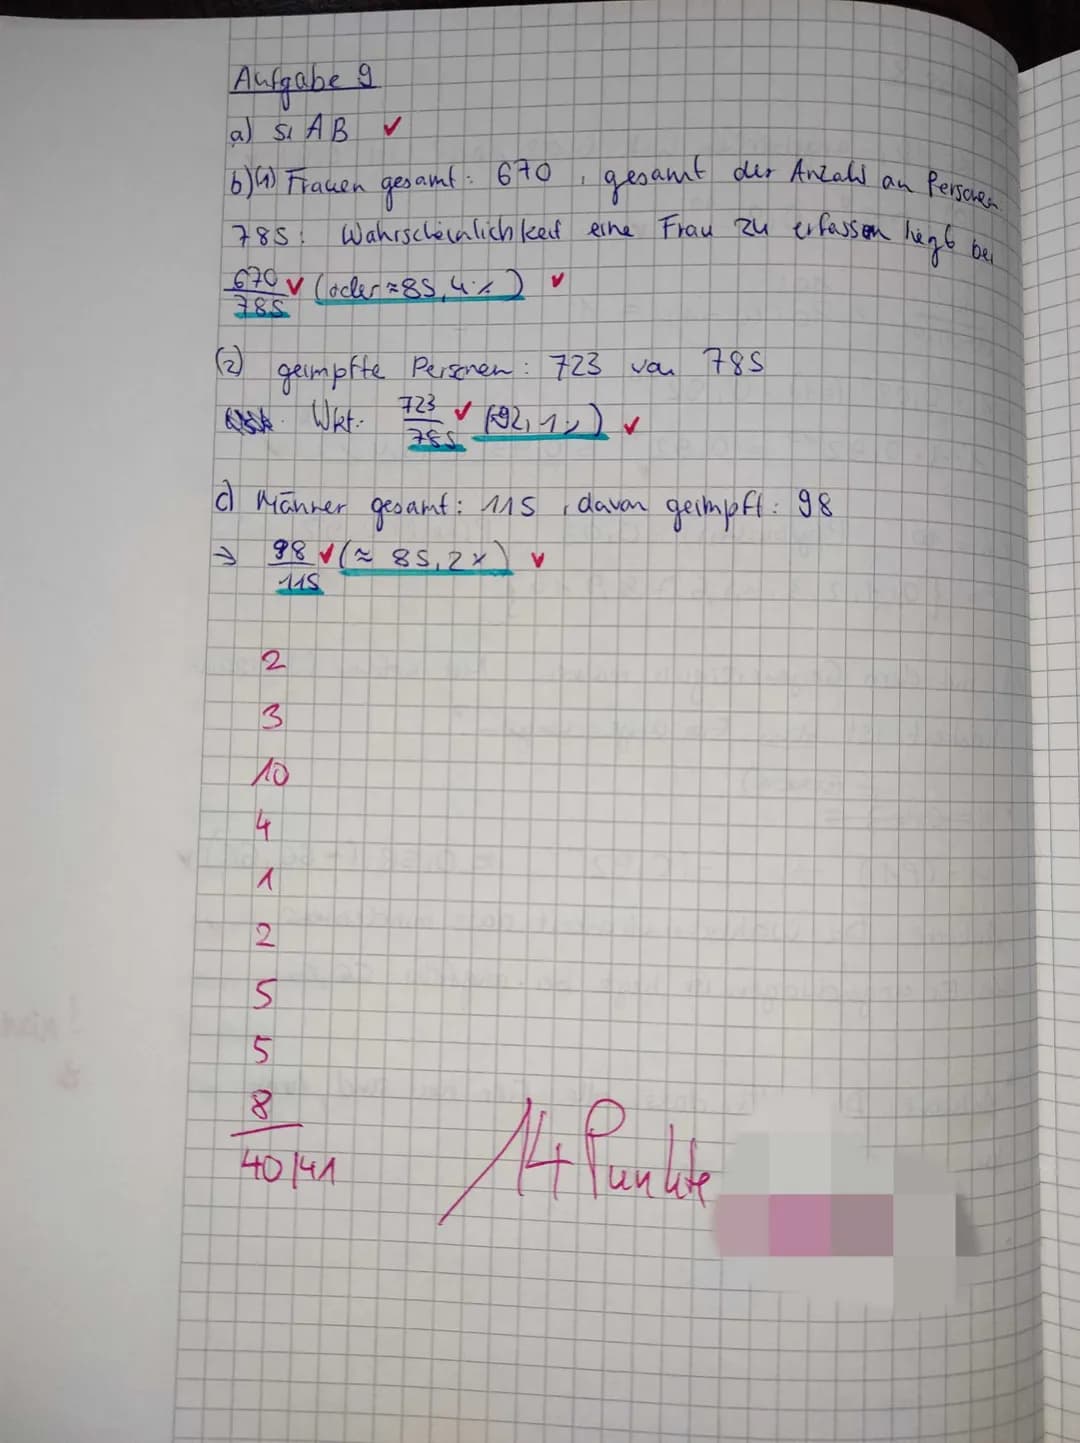 Aufgabe 9
a) s. AB ✓
b)(1) Frauen gesamt: 670, gesamt der Anzahl an Personen
785: Wahrscheinlichkeit eine Frau zu erfassen liegt bei
670/785 ✓ (oder ≈85,4%) ✓
(2) geimpfte Personen: 723 von 785
Wkt.: 723/785 ✓ (≈92,1%) ✓
c) Männer gesamt: 115, davon geimpft: 98
→ 98/115 ✓ (≈ 85,2%) ✓
2
3
10
4
1
2
5
5
8
40/41
14 Punkte